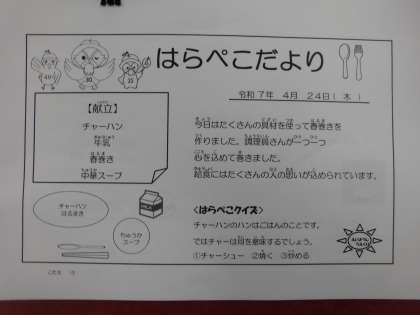 はらぺこだより
令和7年 4月 24日(木)
【献立】
チャーハン
牛乳
春巻き
中華スープ
今日はたくさんの具材を使って春巻きを
作りました。調理員さんが一つ一つ
心を込めて巻きました。
給食にはたくさんの人の思いが込められています。
チャーハン
はるまき
ちゅうか
スープ
<はらぺこクイズ>
チャーハンのハンはごはんのことです。
ではチャーは何を意味するでしょう。
①チャーシュー ②焼く ③炒める